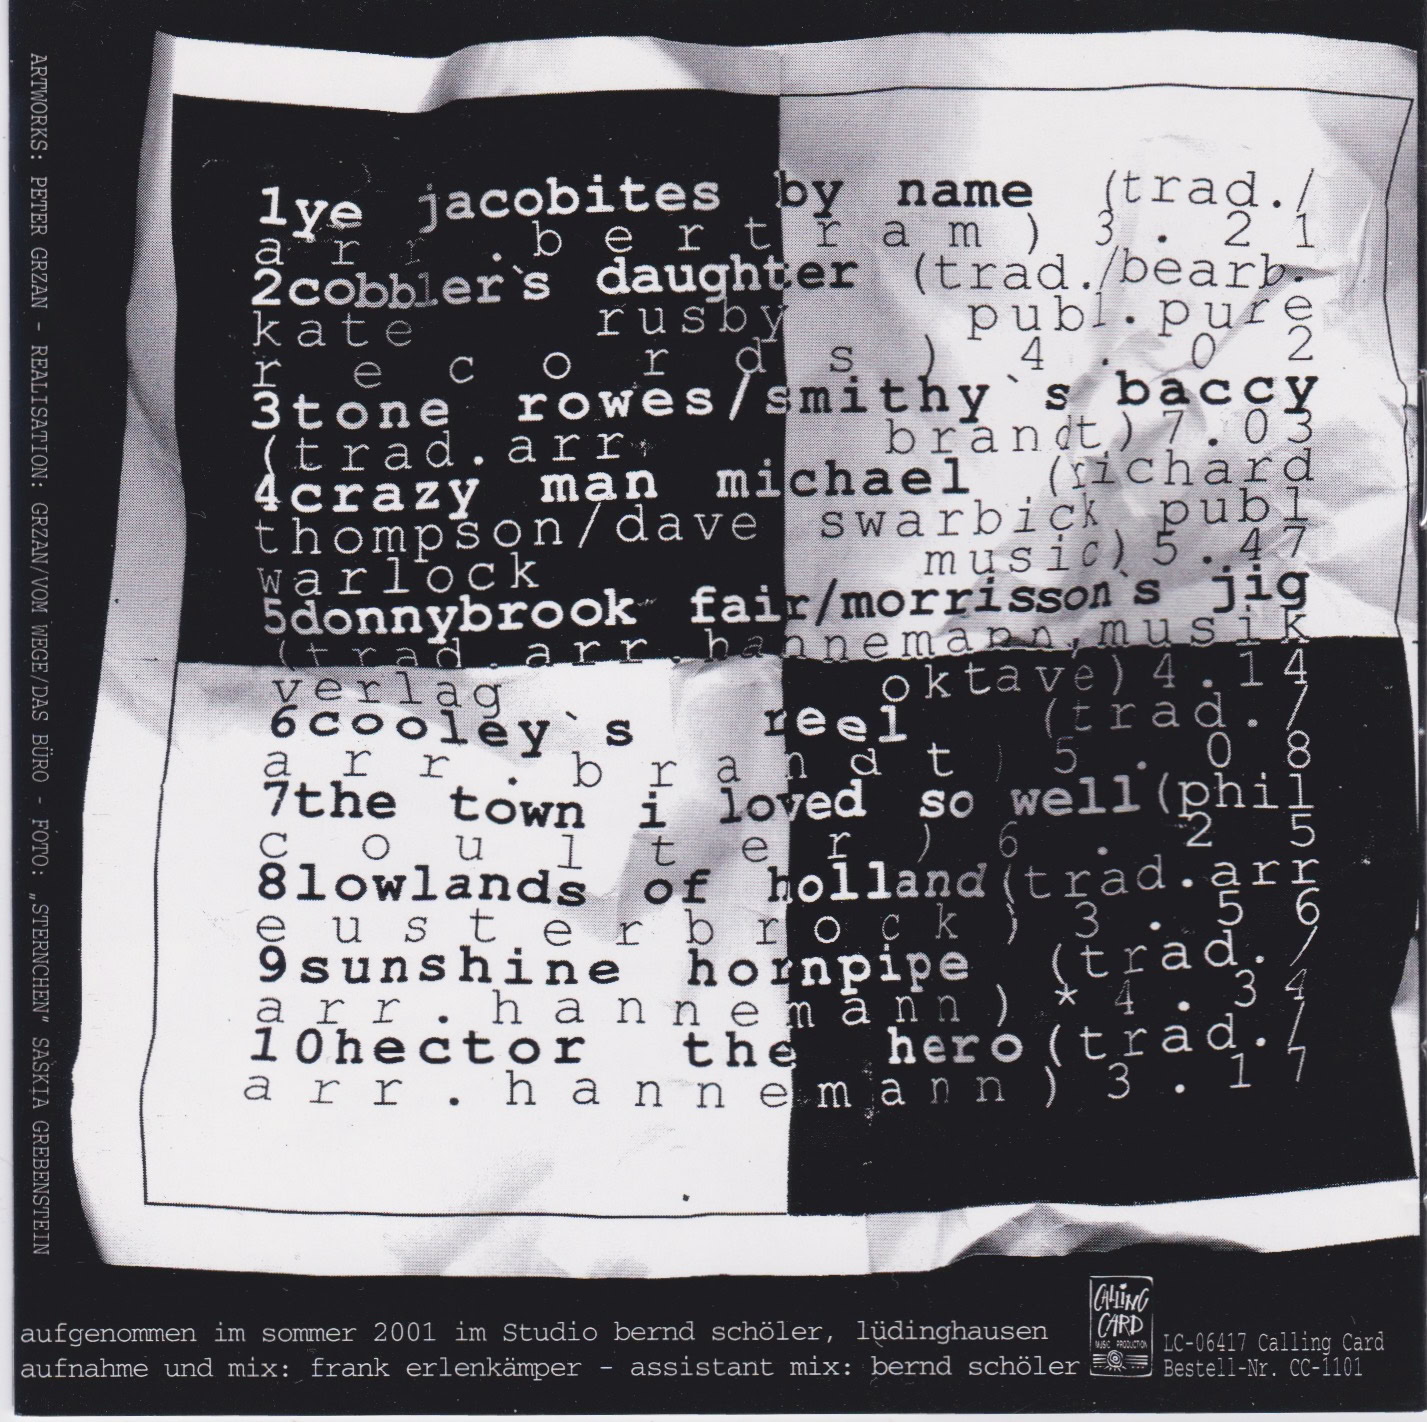 ARTWORKS: PETER GRZAN - REALISATION: GRZAN/VOM WEGE/DAS BÜRO - FOTO: „STERNCHEN" SASKIA GREBENSTEIN
1ye jacobites by name (trad./
arr.bertram) 3.21
2cobbler`s daughter (trad./bearb.
kate rusby publ.pure
records) 4.02
3tone rowes/smithy`s baccy
(trad.arr. brandt)7.03
4crazy man michael (richard
thompson/dave swarbick publ
warlock music)5.47
5donnybrook fair/morrisson`s jig
(trad.arr.hannemann,musik
verlag oktave)4.14
6cooley`s reel (trad./
arr.brandt) 5.08
7the town i loved so well(phil
coulter) 6.25
8lowlands of holland(trad.arr
eusterbrock) 3.56
9sunshine hornpipe (trad./
arr.hannemann)* 4.34
10hector the hero(trad./
arr.hannemann)3.17
aufgenommen im sommer 2001 im Studio bernd schöler, lüdinghausen
aufnahme und mix: frank erlenkämper - assistant mix: bernd schöler
CALLING
CARD
MUSIC PRODUCTION
LC-06417 Calling Card
Bestell-Nr. CC-1101